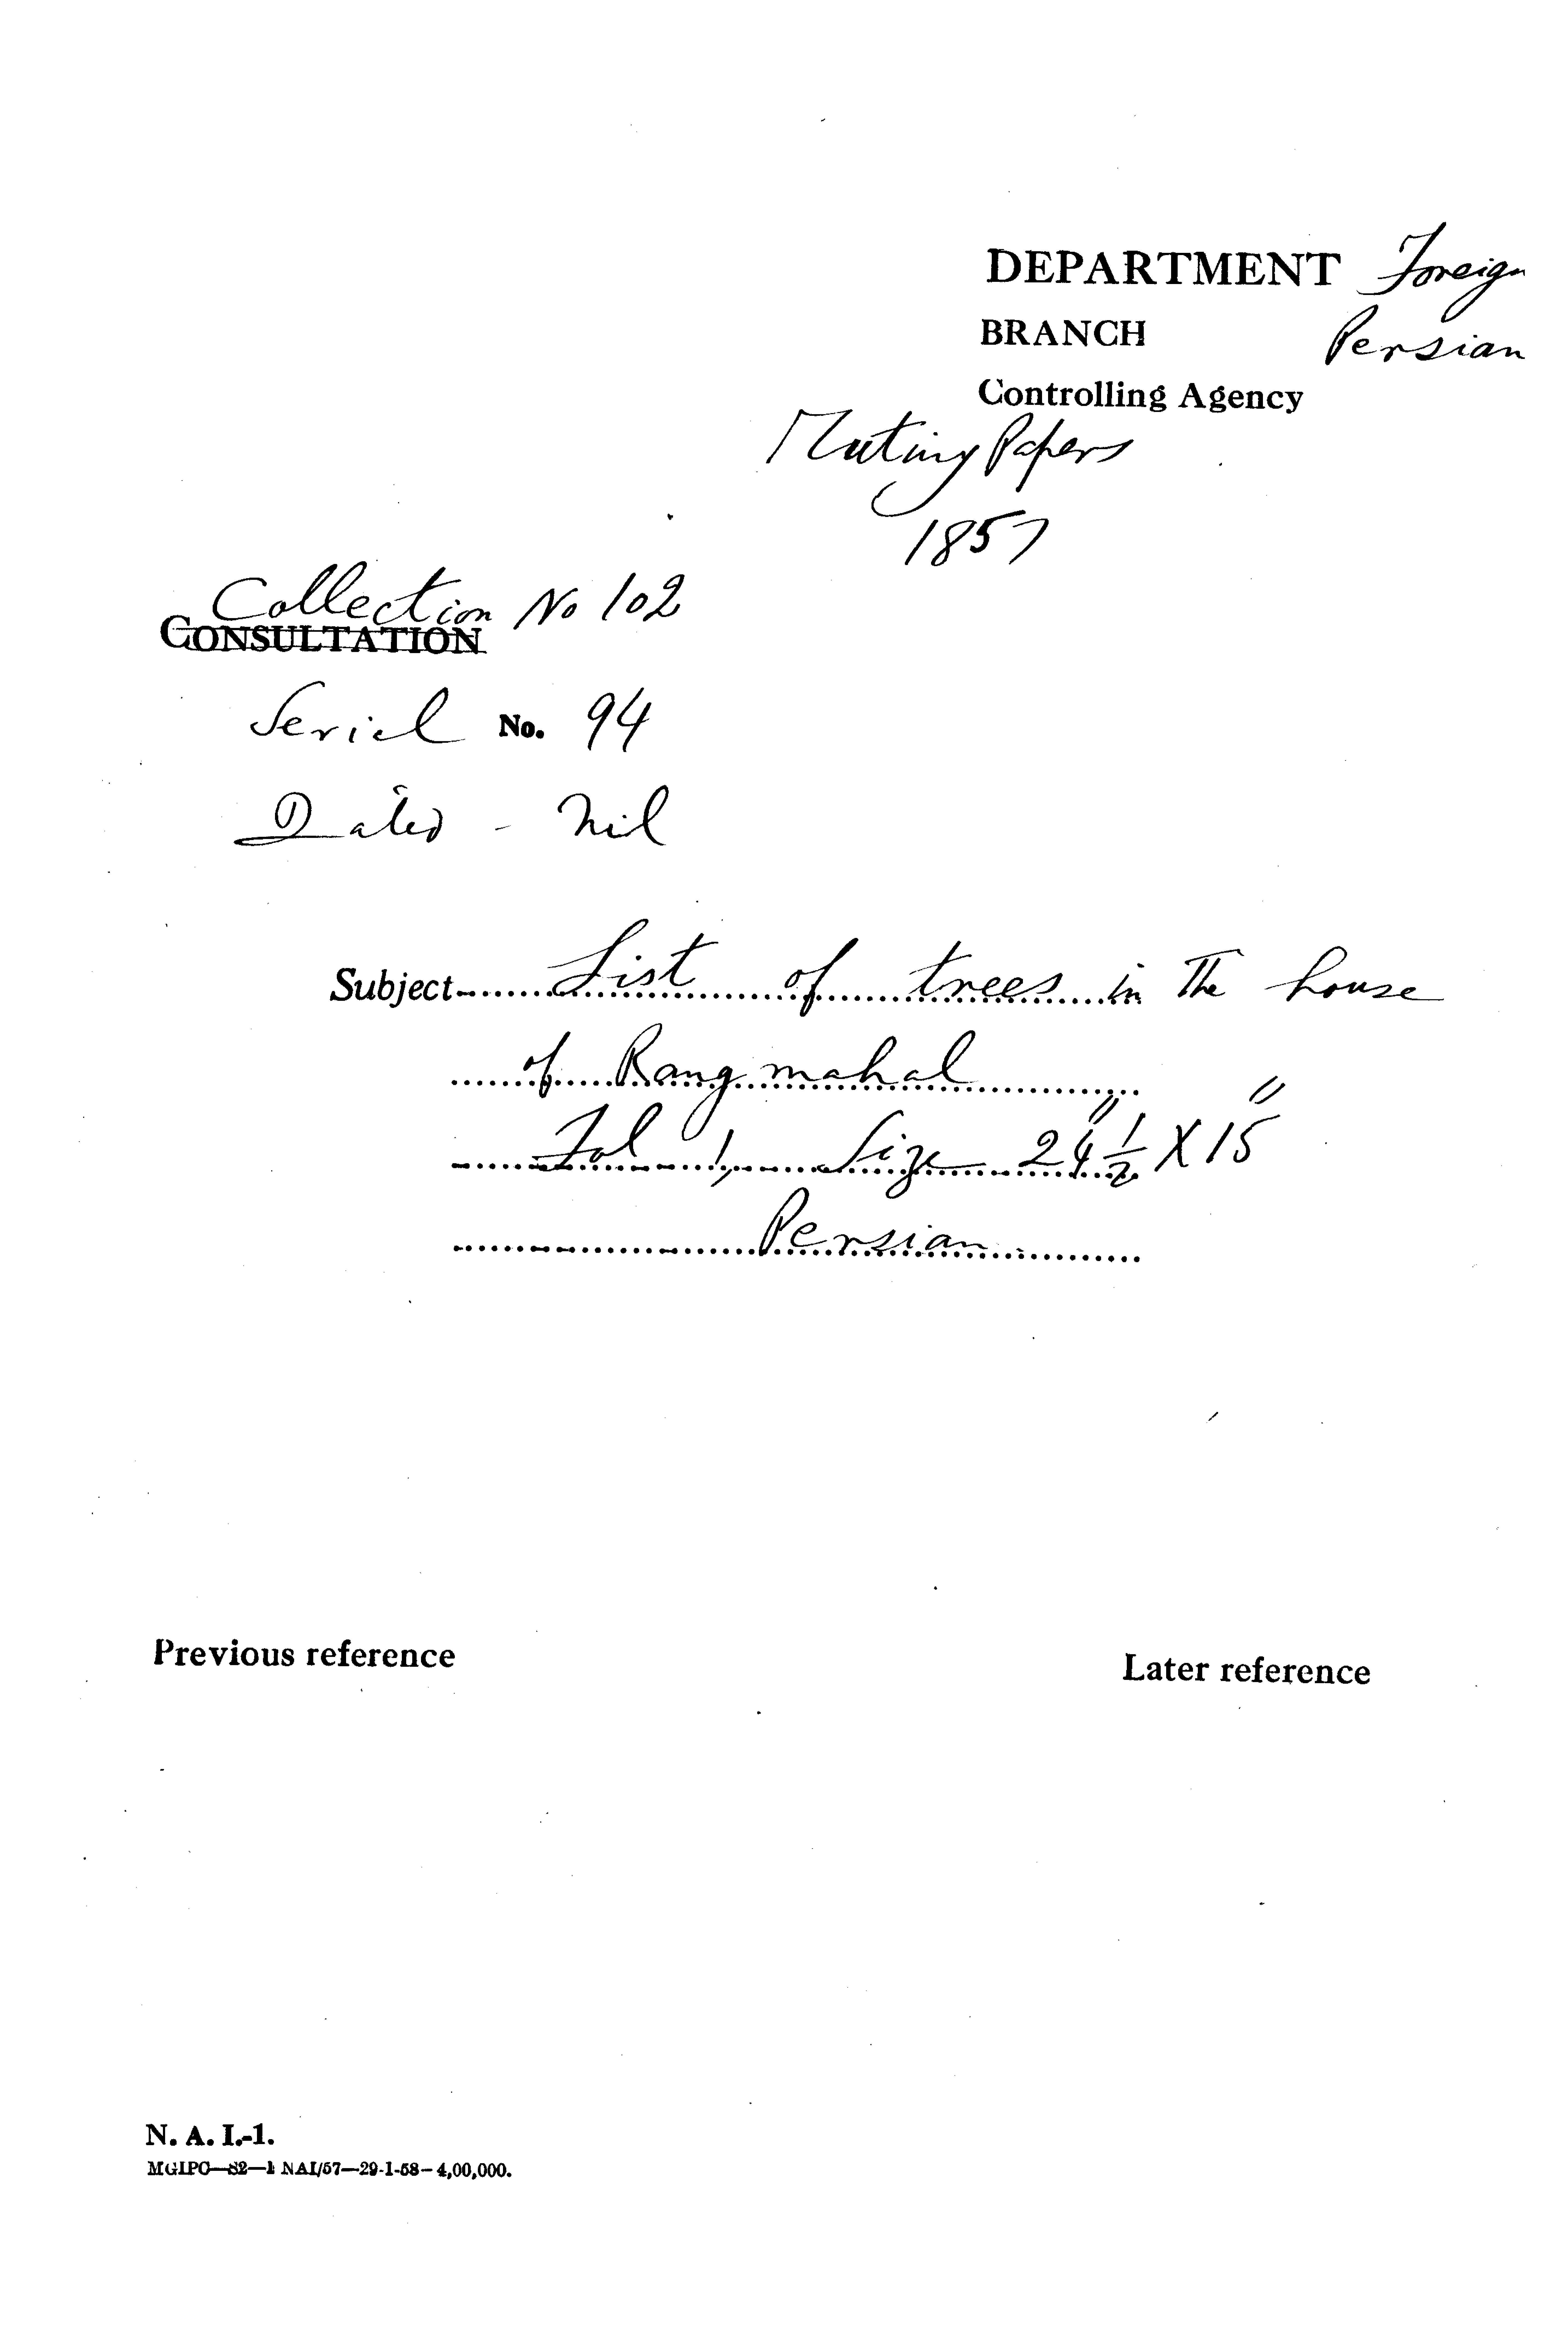 DEPARTMENT Foreign
BRANCH Persian
Controlling Agency
Mutiny Papers
1857
Collection No 102
CONSULTATION
Serial No. 94
Dated - Nil
Subject List of trees in The house
of Rangmahal
Fol 1, Size 24" 1/2 X 15"
Persian
Previous reference
Later reference
N. A. I.-1.
MGIPC—S2—1 NAI/57—29-1-58—4,00,000.